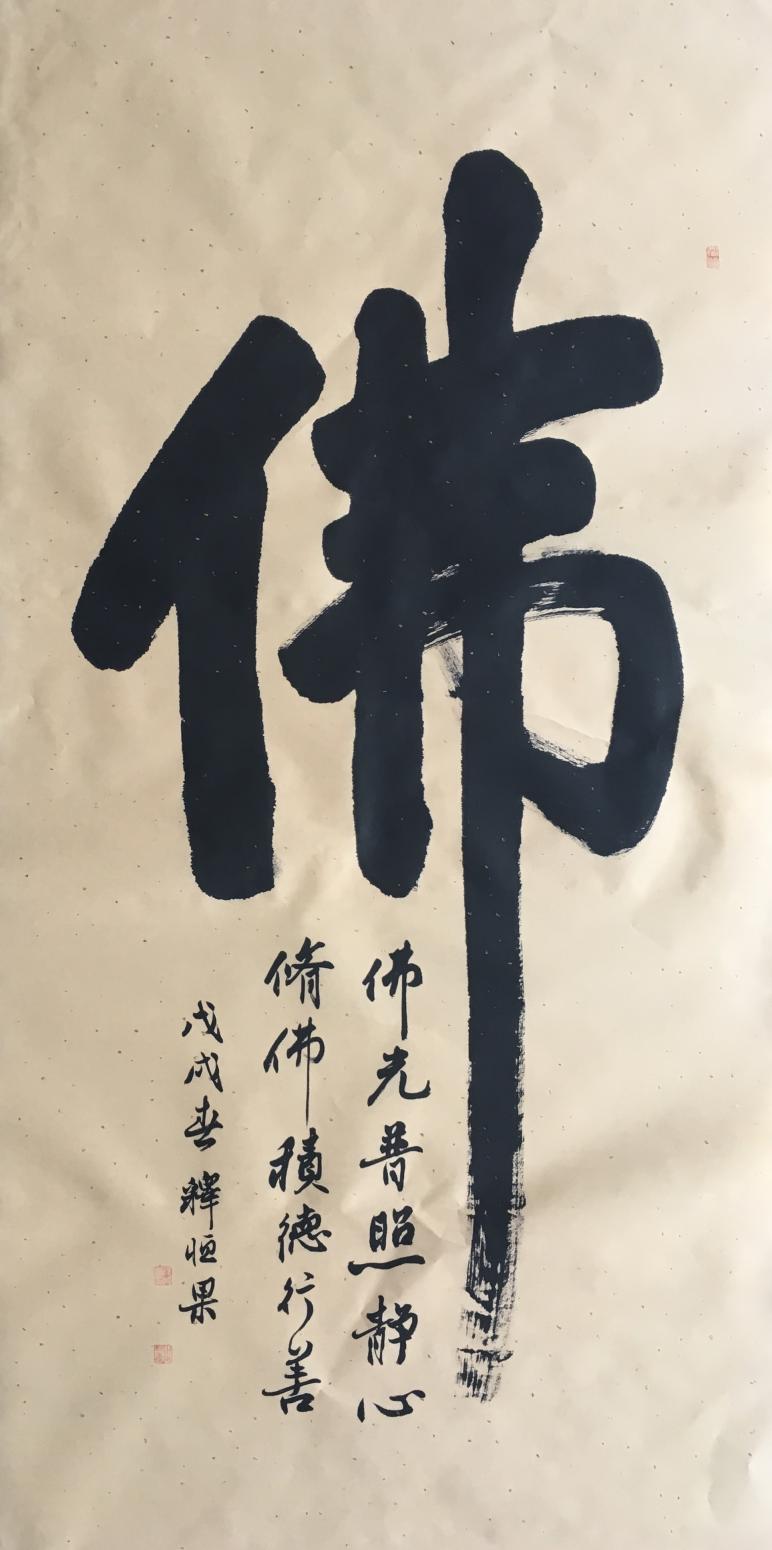 佛
佛光普照静心
脩佛積德行善
戊戌春 釋恒果